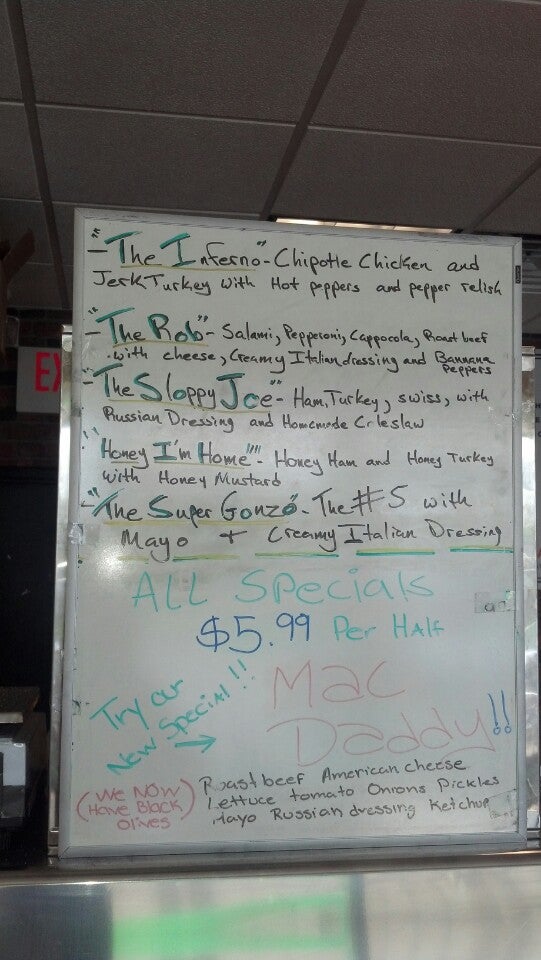 -"The Inferno"- Chipotle Chicken and
Jerk Turkey with Hot peppers and pepper relish
-"The Rob"- Salami, Pepperoni, Cappocola, Roast beef
with cheese, Creamy Italian dressing and Bannana
Peppers
-"The Sloppy Joe"- Ham, Turkey, swiss, with
Russian Dressing and Homemade Coleslaw
"Honey I'm Home"- Honey Ham and Honey Turkey
with Honey Mustard
-"The Super Gonzo"- The #5 with
Mayo + Creamy Italian Dressing
ALL Specials
$5.99 Per Half
Try our
New Special!!
Mac
Daddy!!
(We Now
Have Black
Olives)
Roast beef American cheese
Lettuce tomato Onions Pickles
Mayo Russian dressing Ketchup
EX